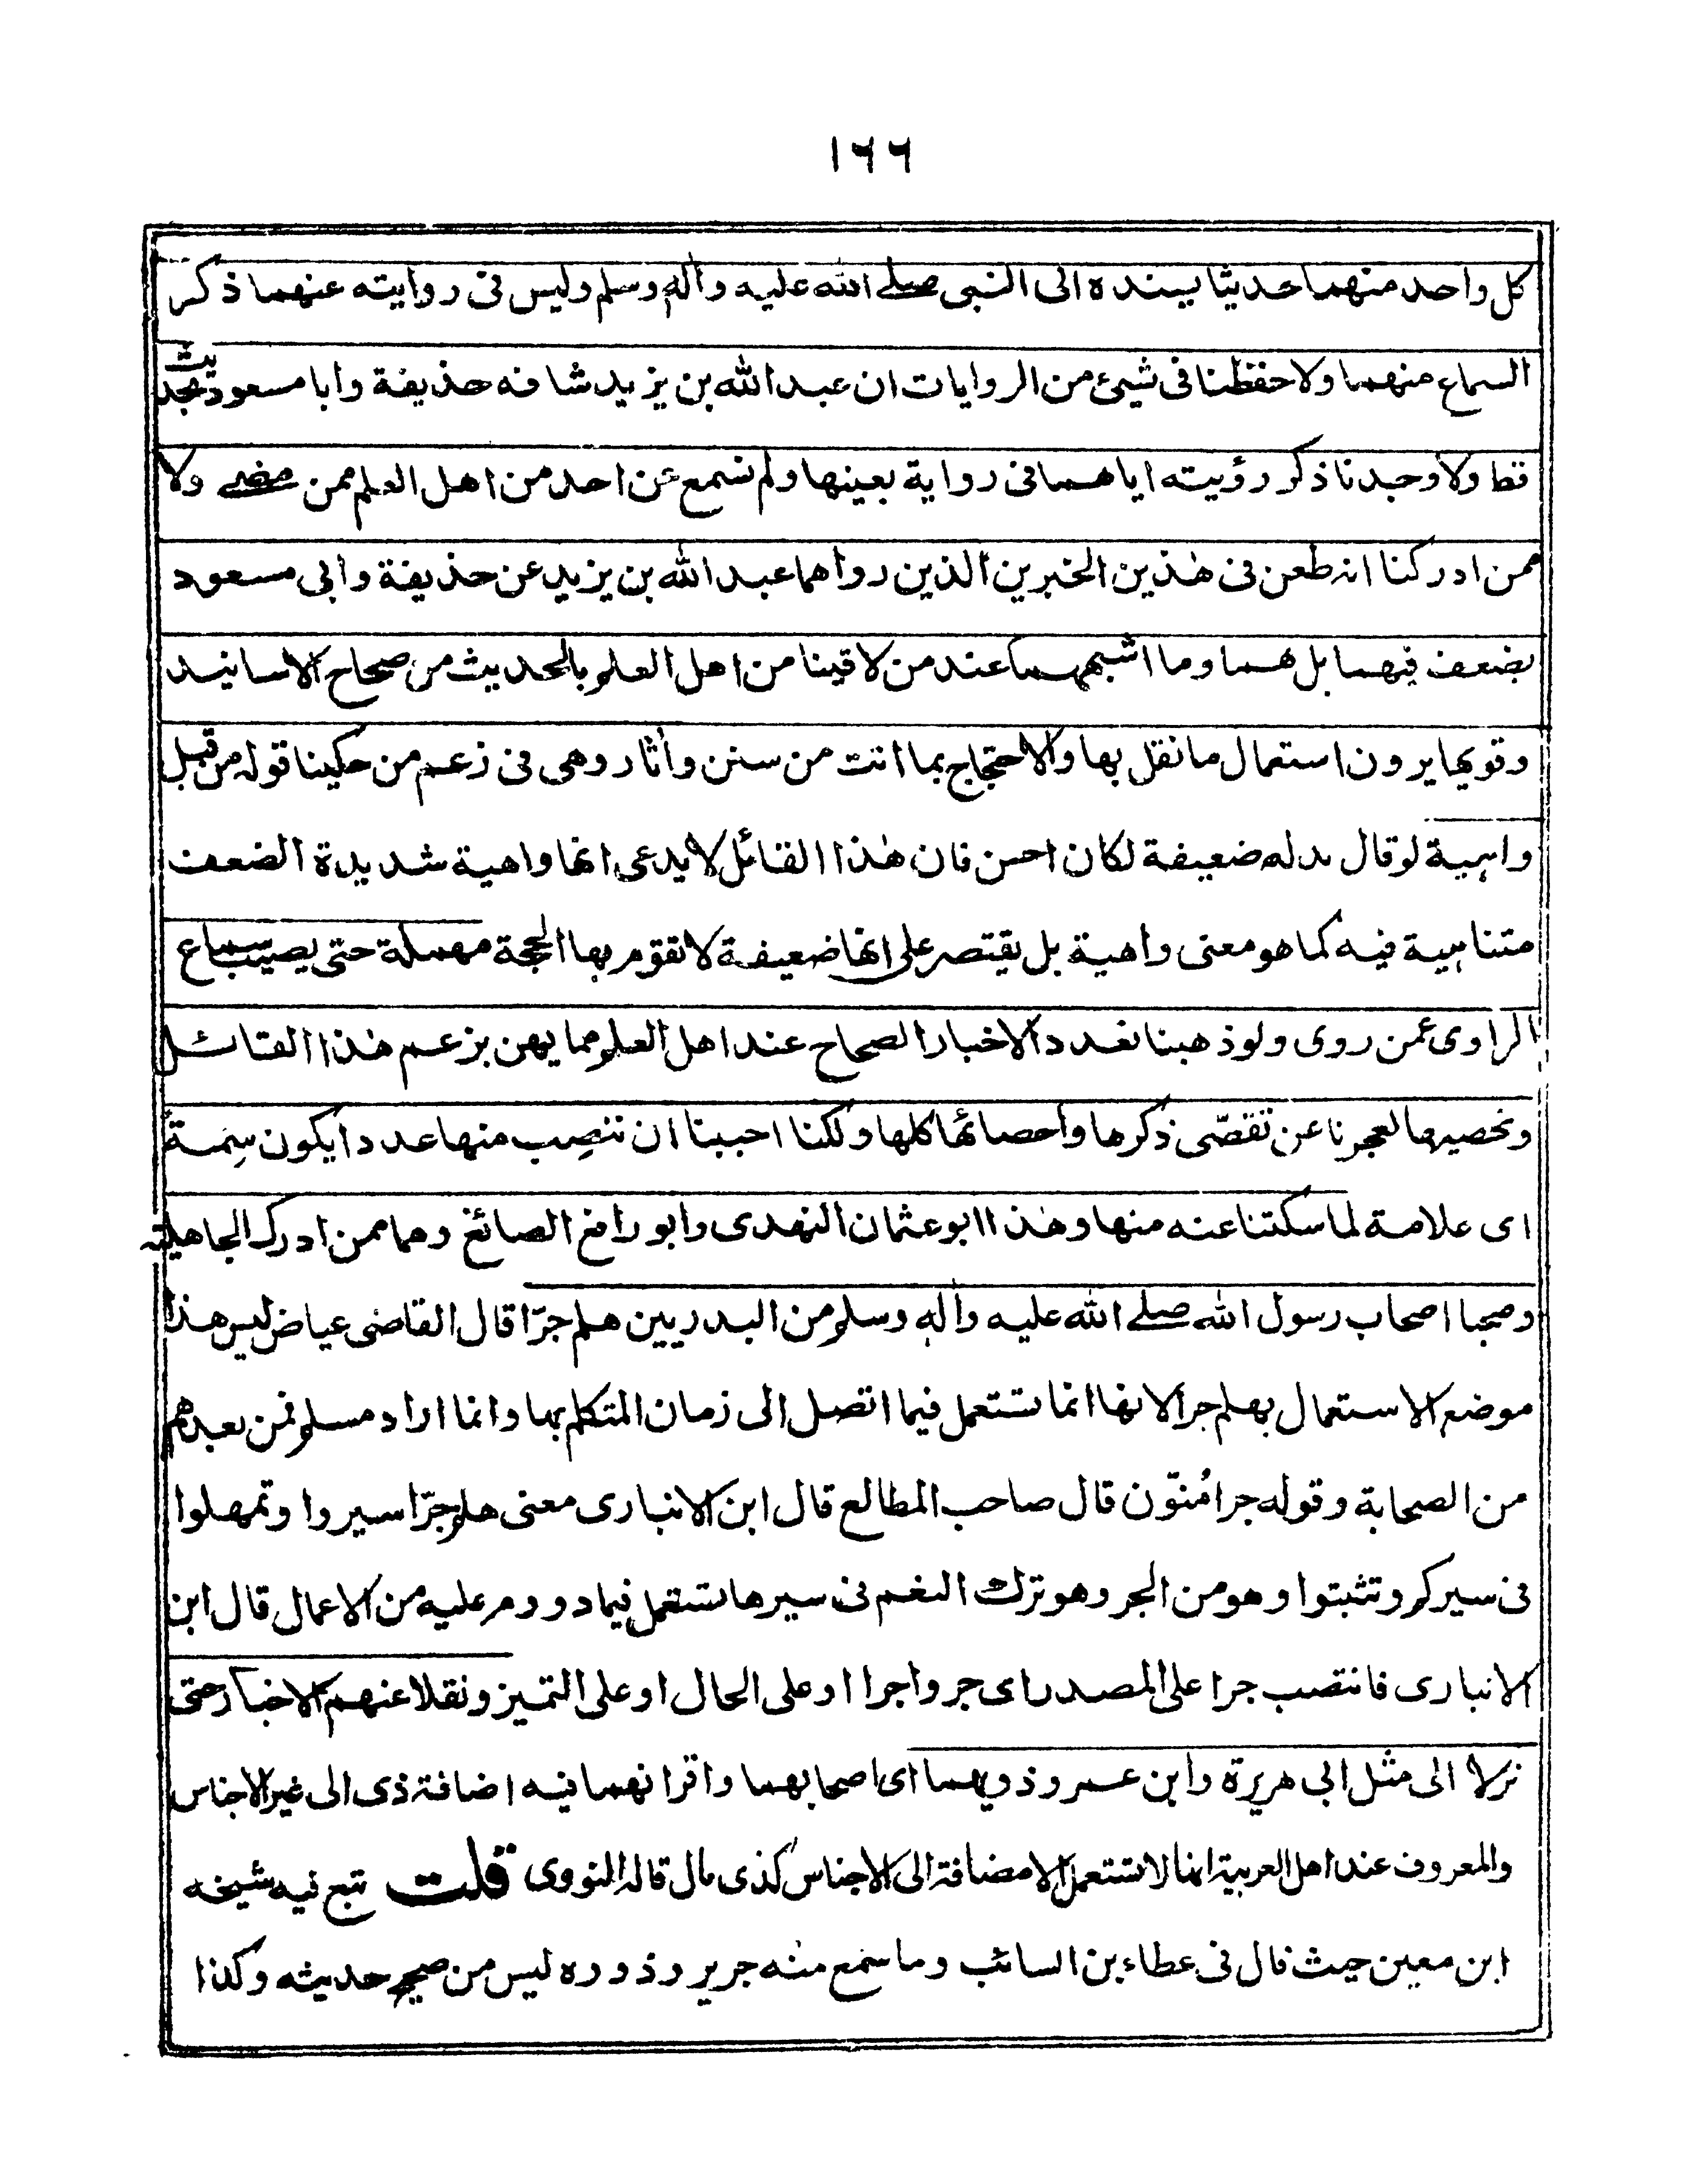 ١٦٦
كل واحد منهما حديثا يسنده الى النبى صلے الله عليه واٰله وسلم وليس فى روايته عنهما ذكر
السماع منهما ولا حفظنا فى شيئ من الروايات ان عبد الله بن يزيد شافه حذيفة وابا مسعود بحديث
قط ولا وجدنا ذكر رؤيته اياهما فى رواية بعينها ولم نسمع عن احد من اهل العلم ممن مضے ولا
ممن ادركنا انه طعن فى هٰذين الخبرين الذين رواهما عبد الله بن يزيد عن حذيفة وابى مسعود
بضعف فيهما بل هما وما اشبههما عند من لاقينا من اهل العلم بالحديث من صحاح الاسانيد
وقويها يرون استعمال ما نقل بها والاحتجاج بما اتت من سنن واٰثار وهى فى زعم من حكينا قوله من قبل
واهية لو قال بدله ضعيفة لكان احسن فان هٰذا القائل لا يدعى انها واهية شديدة الضعف
متناهية فيه كما هو معنى واهية بل يقتصر على انها ضعيفة لا تقوم بها الحجة مهملة حتى يصيب سماع
الراوى عمن روى ولو ذهبنا نعدد الاخبار الصحاح عند اهل العلم مما يهن بزعم هٰذا القائل
ونحصيها لعجزنا عن تقصّى ذكرها واحصائها كلها ولكنا احببنا ان ننصب منها عددا يكون سِمة
اى علامة لما سكتنا عنه منها وهٰذا ابو عثمان النهدى وابو رافع الصائغ وهما ممن ادرك الجاهلية
وصحبا اصحاب رسول الله صلے الله عليه واٰله وسلم من البدريين هلم جرّا قال القاضى عياض ليس هذا
موضع الاستعمال بهلم جرا لانها انما تستعمل فيما اتصل الى زمان المتكلم بها وانما اراد مسلم فمن بعدهم
من الصحابة وقوله جرا مُنوّن قال صاحب المطالع قال ابن الانبارى معنى هلم جرّا سيروا وتمهلوا
فى سيركم وتثبتوا وهو من الجر وهو ترك النعم فى سيرها تستعمل فيما دووم عليه من الاعمال قال ابن
الانبارى فانتصب جرا على المصدر اى جروا جرا او على الحال او على التميز ونقلا عنهم الاخبار حتى
نزلا الى مثل ابى هريرة وابن عمر وذويهما اى اصحابهما واقرانهما فيه اضافة ذى الى غير الاجناس
والمعروف عند اهل العربية انها لا تستعمل الا مضافة الى الاجناس كذى مال قاله النووى قلت تبع فيه شيخه
ابن معين حيث قال فى عطاء بن السائب وما سمع منه جرير وذووه ليس من صحيح حديثه وكذا